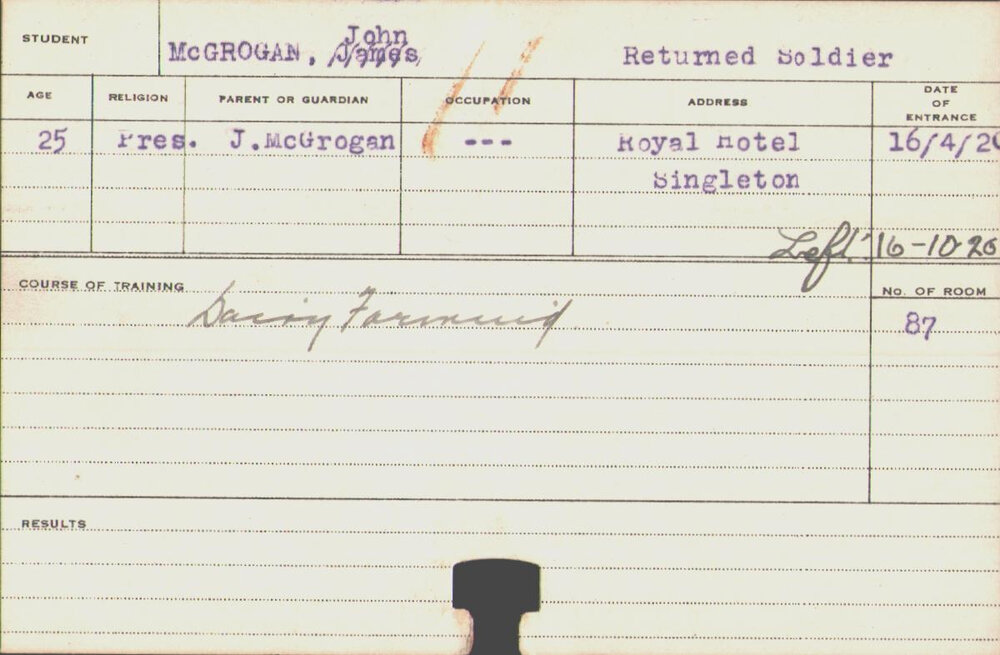 STUDENT McGROGAN, John James Returned Soldier
AGE RELIGION PARENT OR GUARDIAN OCCUPATION ADDRESS DATE OF ENTRANCE
25 Pres. J.McGrogan --- Royal Hotel 16/4/20
Singleton
Left: 16-10-20
COURSE OF TRAINING Dairy Farming No. OF ROOM
87
RESULTS